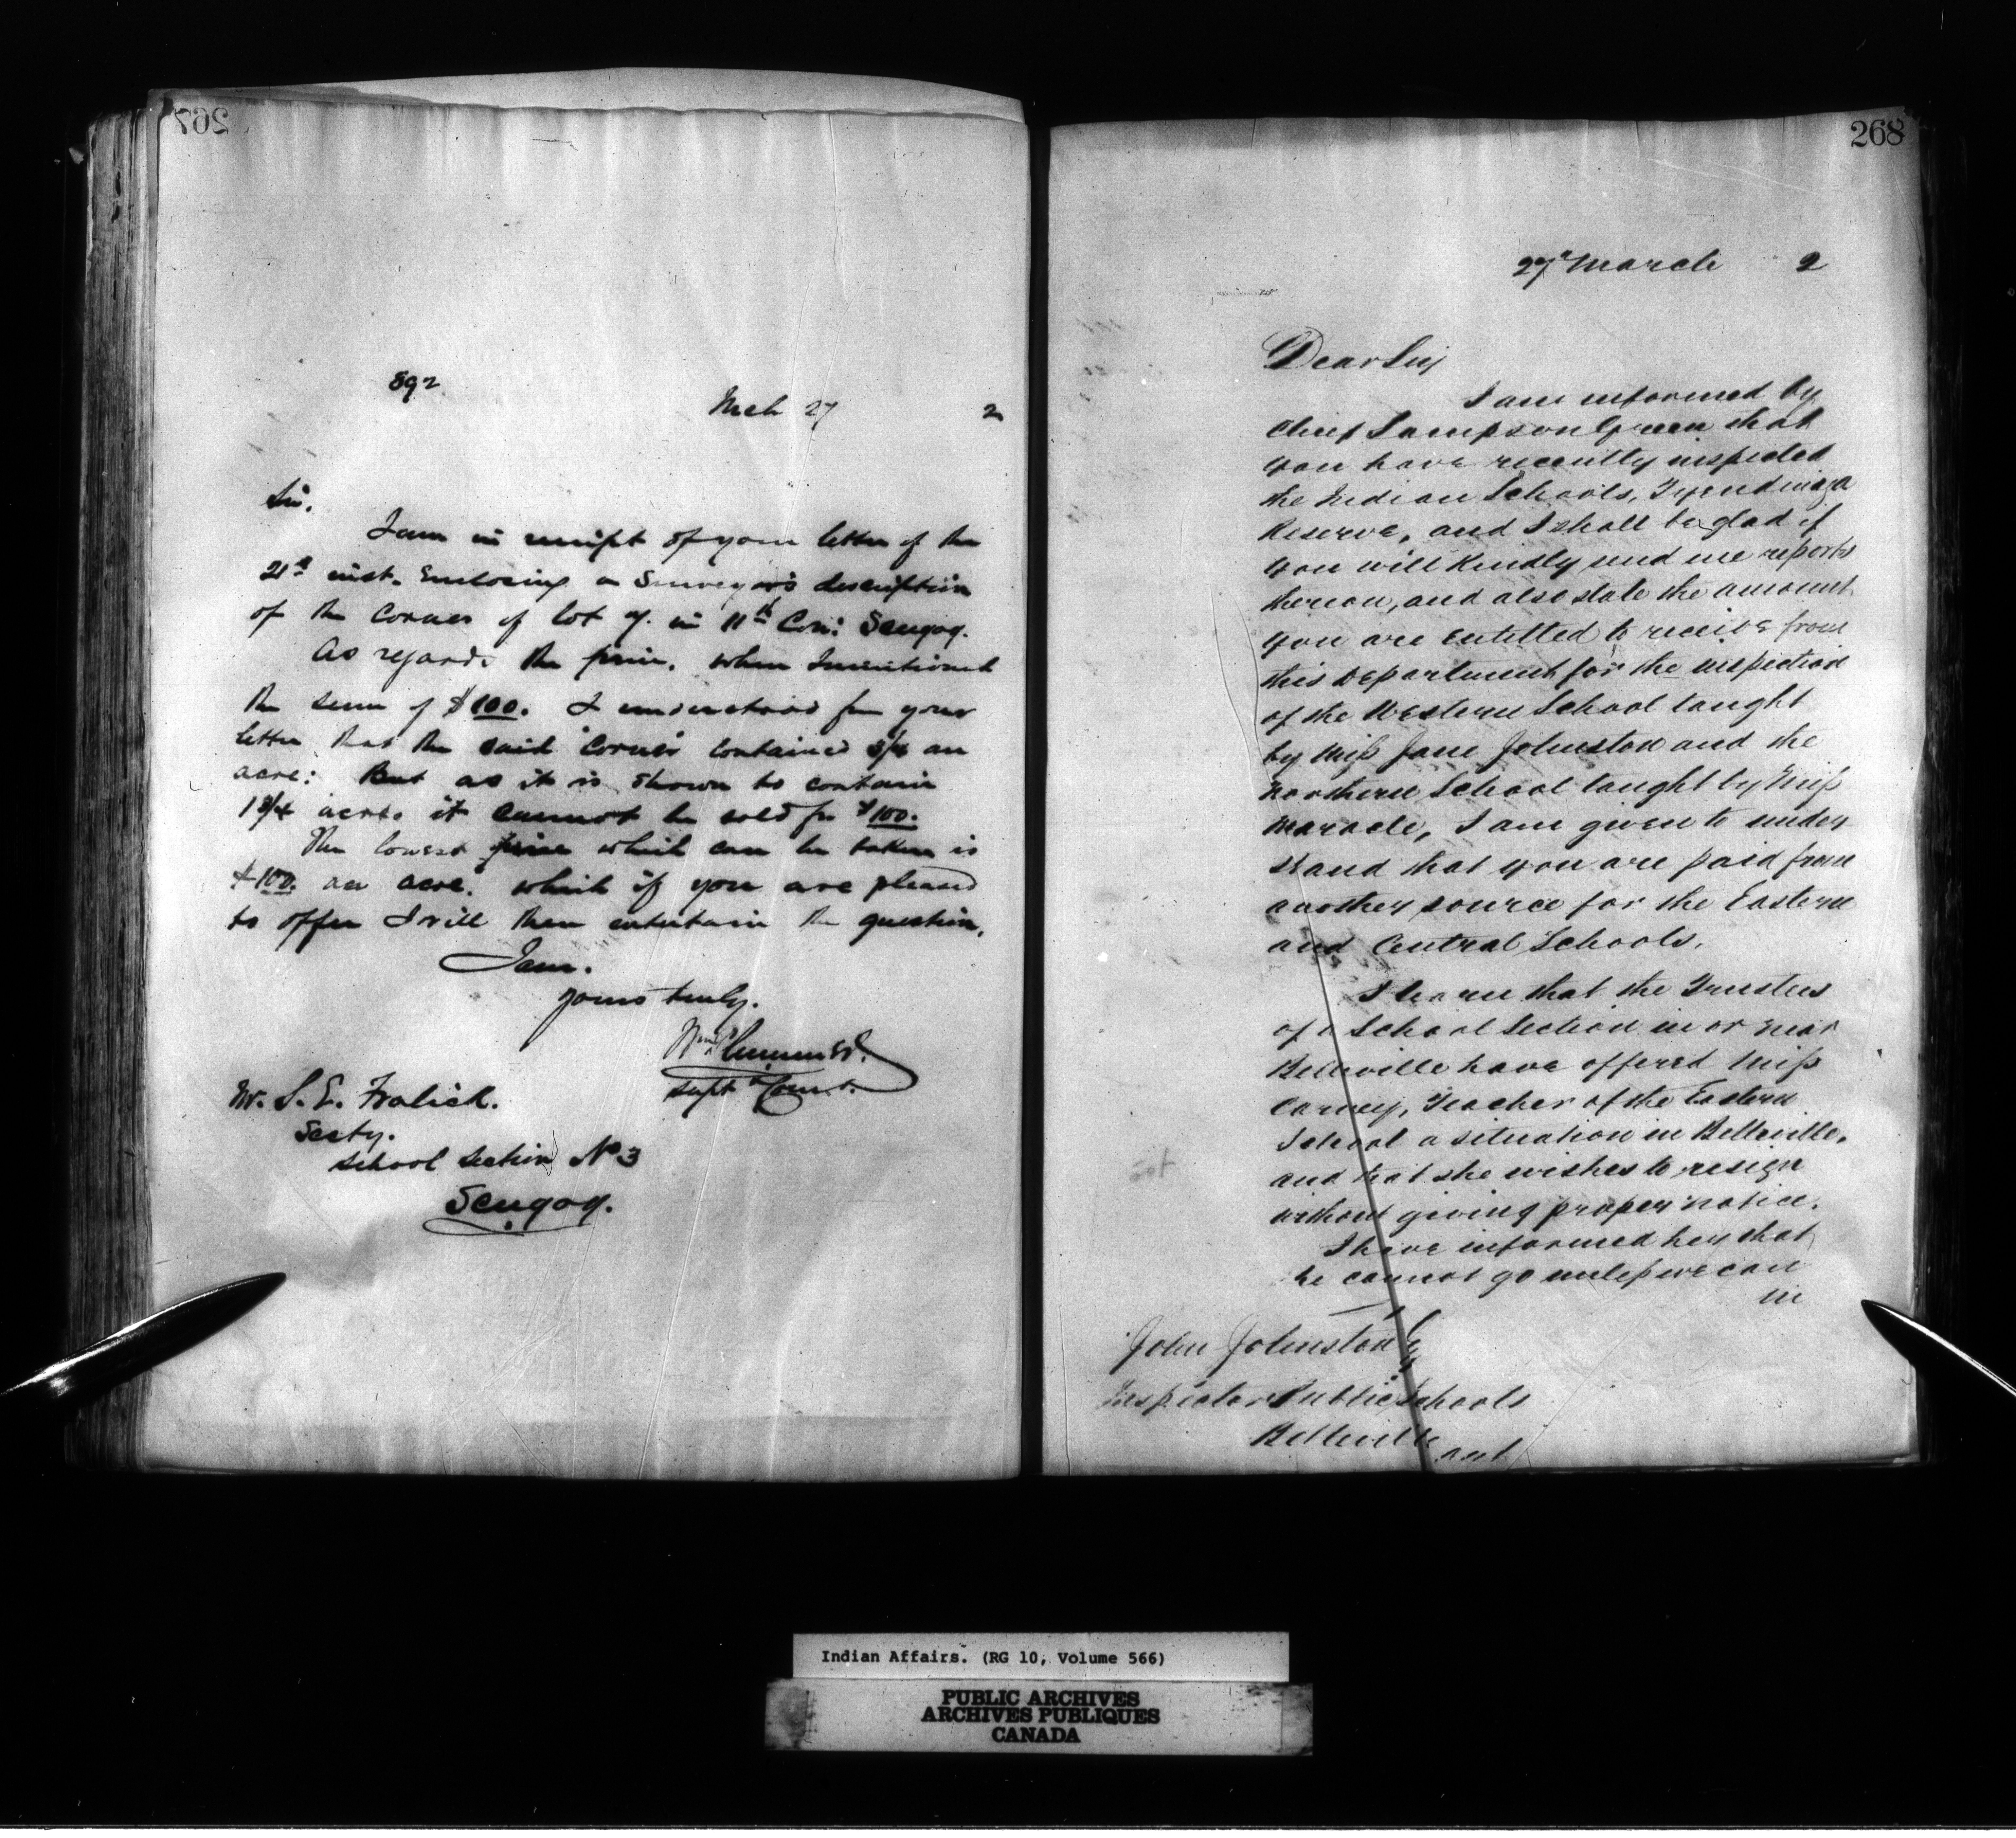 267
592
Mch 27 2
Sir,
I am in receipt of your letter of the
21st inst. Enclosing a Surveyor's description
of the Corner of lot 7. in 11th Con: Scugog.
As regards the price. when I mentioned
the sum of $100. I understood from your
letter that the said Corner contained 3/4 an
acre: But as it is shown to contain
1 3/4 acres it cannot be sold for $100.
The lowest price which can be taken is
$100. an acre. which if you are pleased
to offer I will then entertain the question.
I am.
yours truly.
Wm Plummer.
Supt & Comr.
Mr. S. E. Fralick.
Secty.
School Section No 3
Scugog.
268
27th March 2
Dear Sir,
I am informed by
Chief Sampson Green that
you have recently inspected
the Indian Schools, Tyendinaga
Reserve, and I shall be glad if
you will Kindly send me reports
thereon, and also state the amount
you are entitled to receive from
this Department for the inspection
of the Western School taught
by Miss Jane Johnston and the
Northern School taught by Miss
Maracle, I am given to under
stand that you are paid from
another source for the Eastern
and Central Schools.
I learn that the Trustees
of a School Section in or near
Belleville have offered Miss
Carney, Teacher of the Eastern
School a situation in Belleville,
and that she wishes to resign
without giving proper notice.
I have informed her that
he cannot go unless we can
in
John Johnston
Inspector Public Schools
Belleville
ont
Indian Affairs. (RG 10, Volume 566)
PUBLIC ARCHIVES
ARCHIVES PUBLIQUES
CANADA